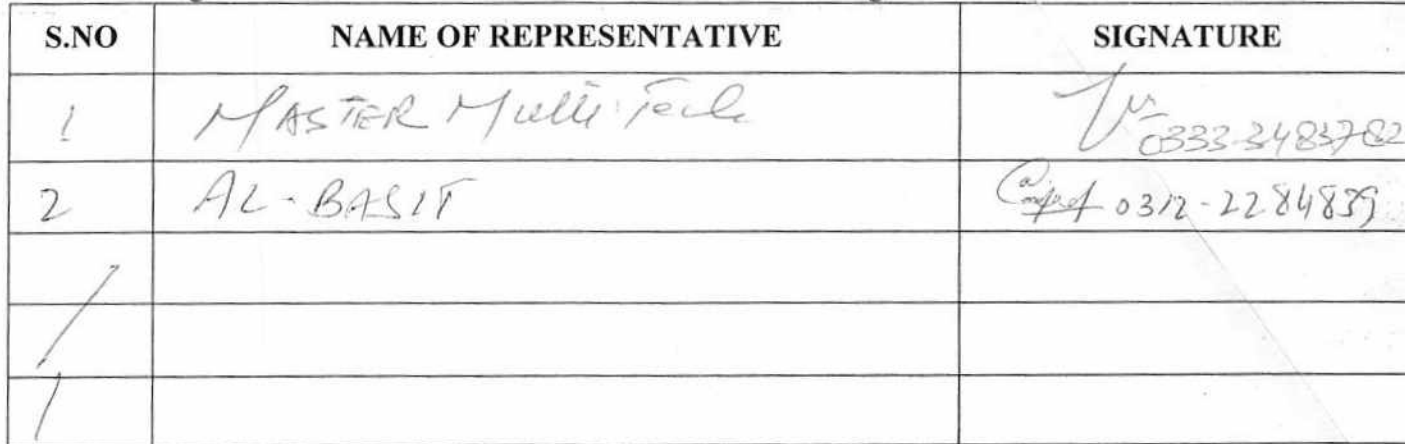 S.NO NAME OF REPRESENTATIVE SIGNATURE
1 MASTER Multi Tech
0333-3483782
2 AL-BASIT 0312-2284839